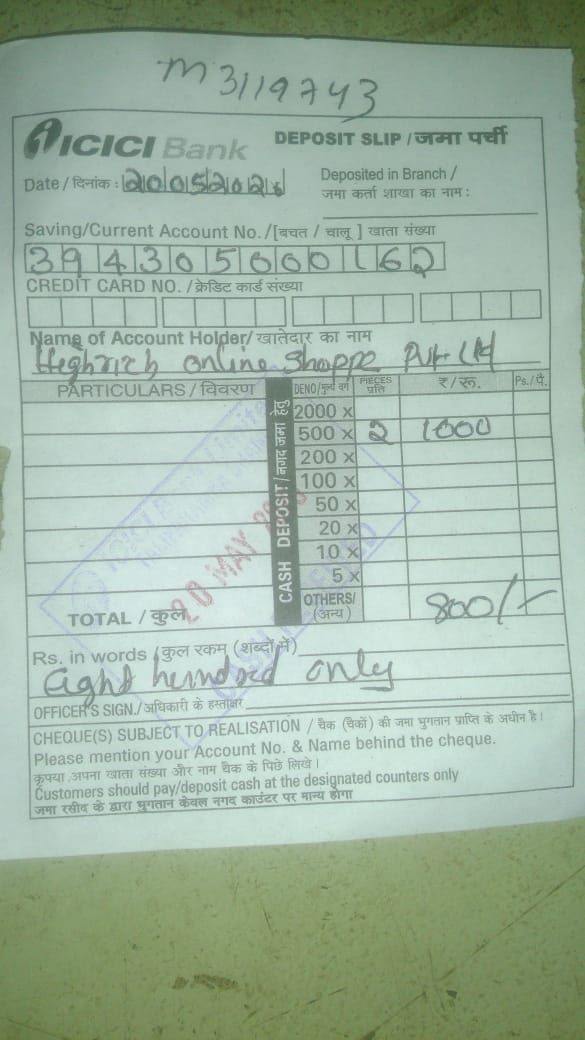 M3119743
ICICI Bank DEPOSIT SLIP / जमा पर्ची
Date / दिनांक : 2005202
Deposited in Branch /
जमा कर्ता शाखा का नाम :
Saving/Current Account No. / [बचत / चालू ] खाता संख्या
394305000162
CREDIT CARD NO. / क्रेडिट कार्ड संख्या
Name of Account Holder/ खातेदार का नाम
Heghrich online Shoppe Pvt Ltd
PARTICULARS / विवरण DENO/मुल्य वर्ग PIECES प्रति ₹/रू. Ps./पै.
CASH DEPOSIT/नगद जमा हेतु
2000 x
500 x 2 1000
200 x
100 x
50 x
20 x
10 x
5 x
TOTAL / कुल OTHERS/ (अन्य) 800/-
20 MAY
Rs. in words / कुल रकम (शब्दों में)
Eight hundred only
OFFICER'S SIGN./अधिकारी के हस्ताक्षर
CHEQUE(S) SUBJECT TO REALISATION / चैक (चैकों) की जमा भुगतान प्राप्ति के अधीन है।
Please mention your Account No. & Name behind the cheque.
कृपया अपना खाता संख्या और नाम चैक के पिछे लिखे।
Customers should pay/deposit cash at the designated counters only
जमा रसीद के द्वारा भुगतान केवल नगद काउंटर पर मान्य होगा